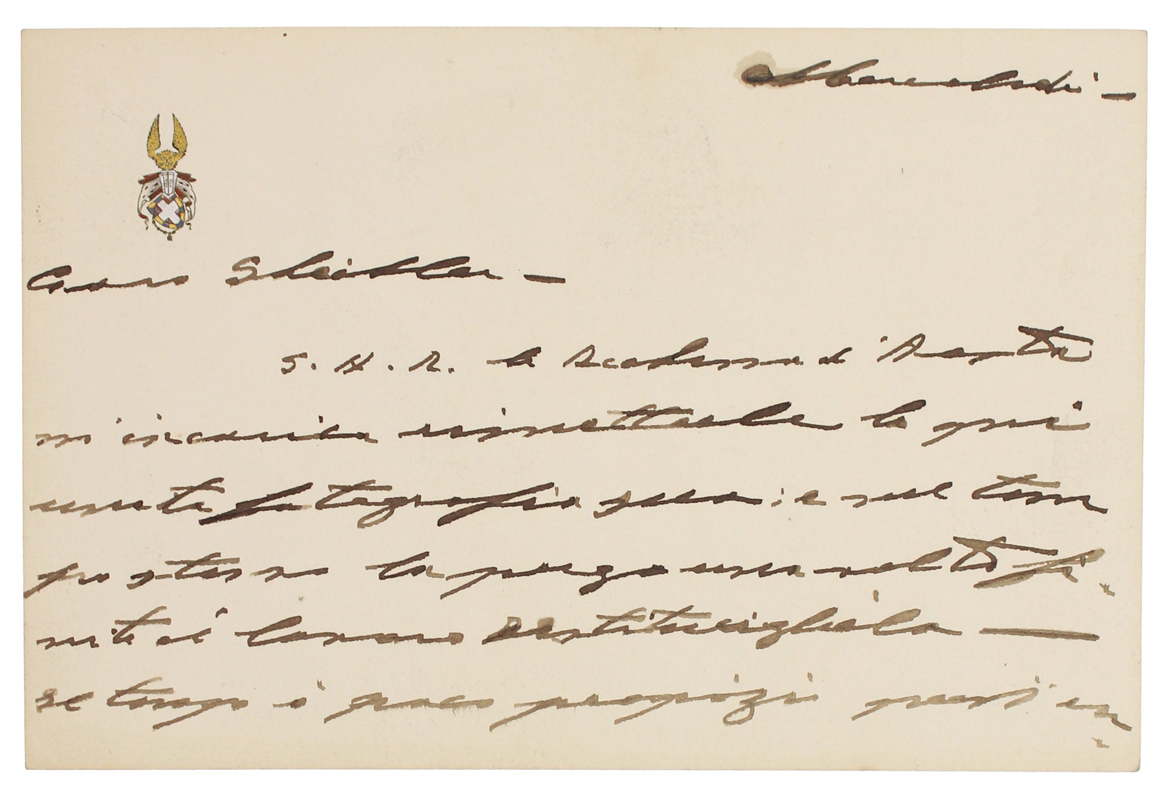 Mercoledì —
Caro Scheibler —
S. A. R. la Duchessa d'Aosta
m'incarica rimetterle la qui
unita fotografia sua: e nel tem
po stesso la prega una volta fi
nito il lavoro restituirgliela —
Se tempo è poco propizio